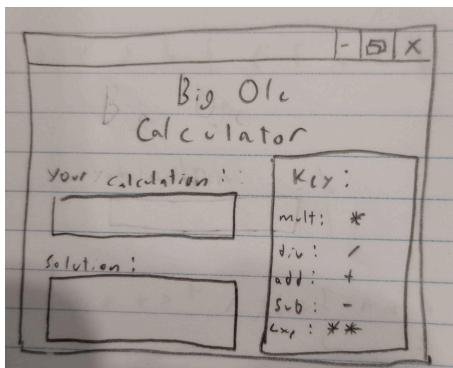 - X
Big Ole
Calculator
Your calculation:
Solution:
Key:
mult: *
div: /
add: +
sub: -
exp: **